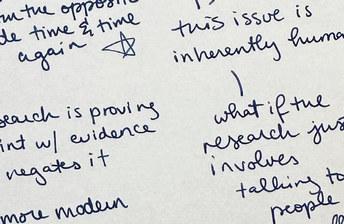 the opposite
time & time
again
is proving
w/ evidence
negates it
more modern
this issue is
inherently human
what if the
research just
involves
talking to
people